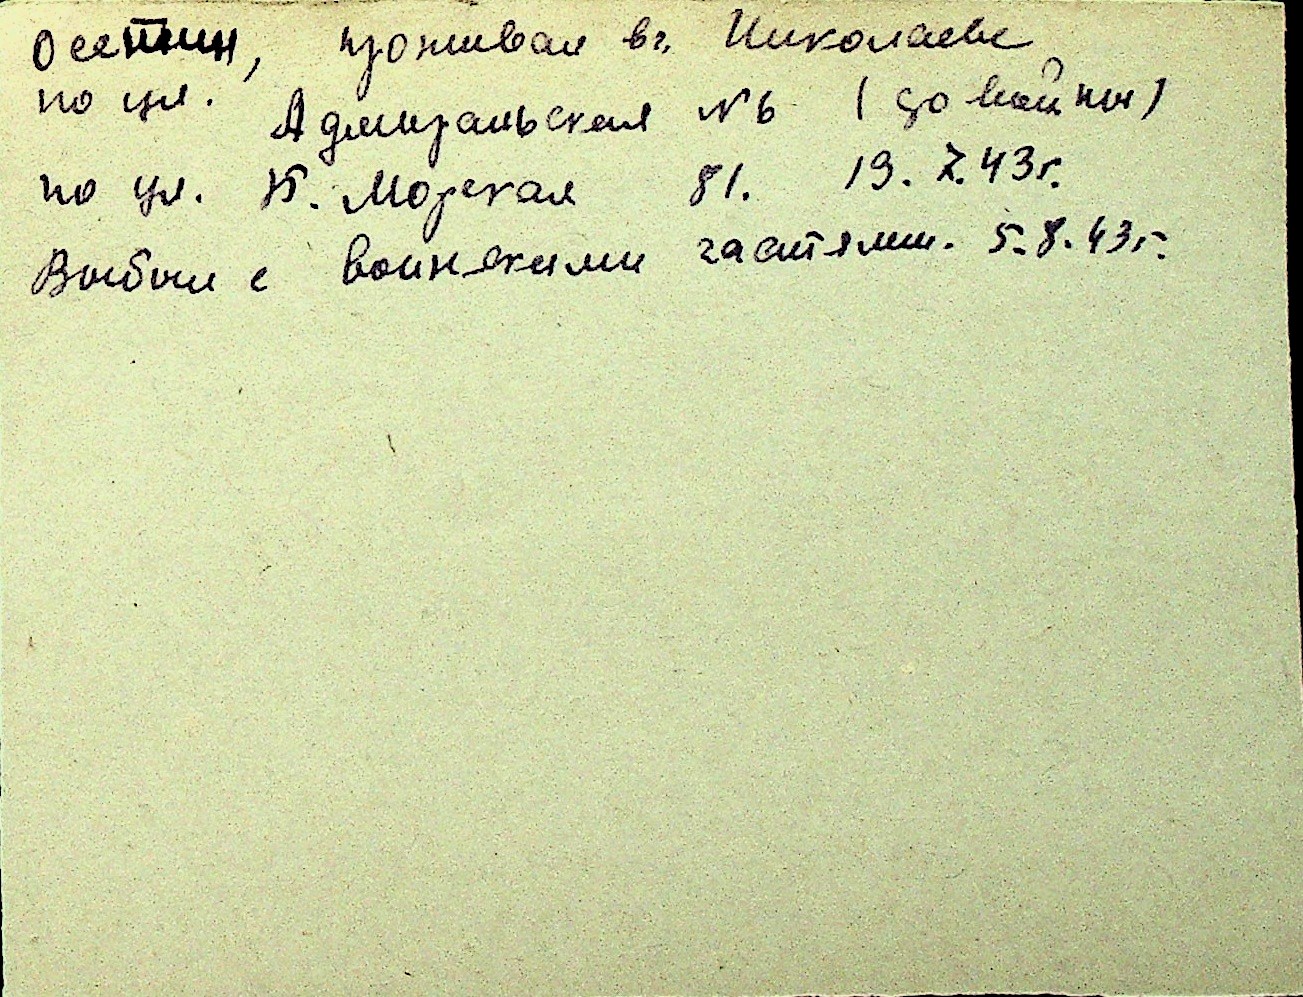 Осетин, проживал в г. Николаеве
по ул. Адмиральская № 6 (до войны)
по ул. Б. Морская 81. 19.7.43г.
Выбыл с воинскими частями. 5.8.43г.